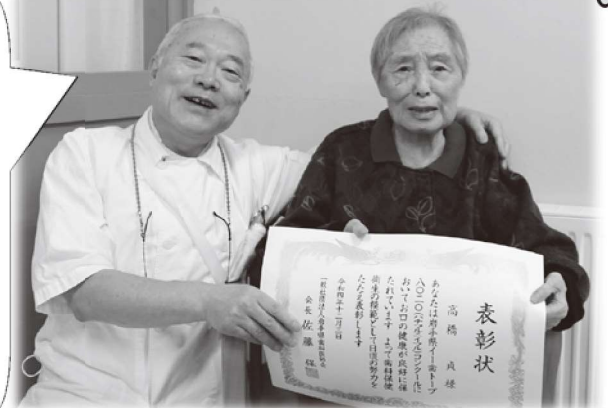 表彰状
高橋 貞 様
あなたは岩手県イー歯トーブ
八〇二〇(プラチナ)コンクールに
おいてお口の健康が良好に保
たれています よって歯科保健
衛生の模範として日頃の努力を
たたえ表彰します
令和四年十二月三日
一般社団法人岩手県歯科医師会
会長 佐藤 保